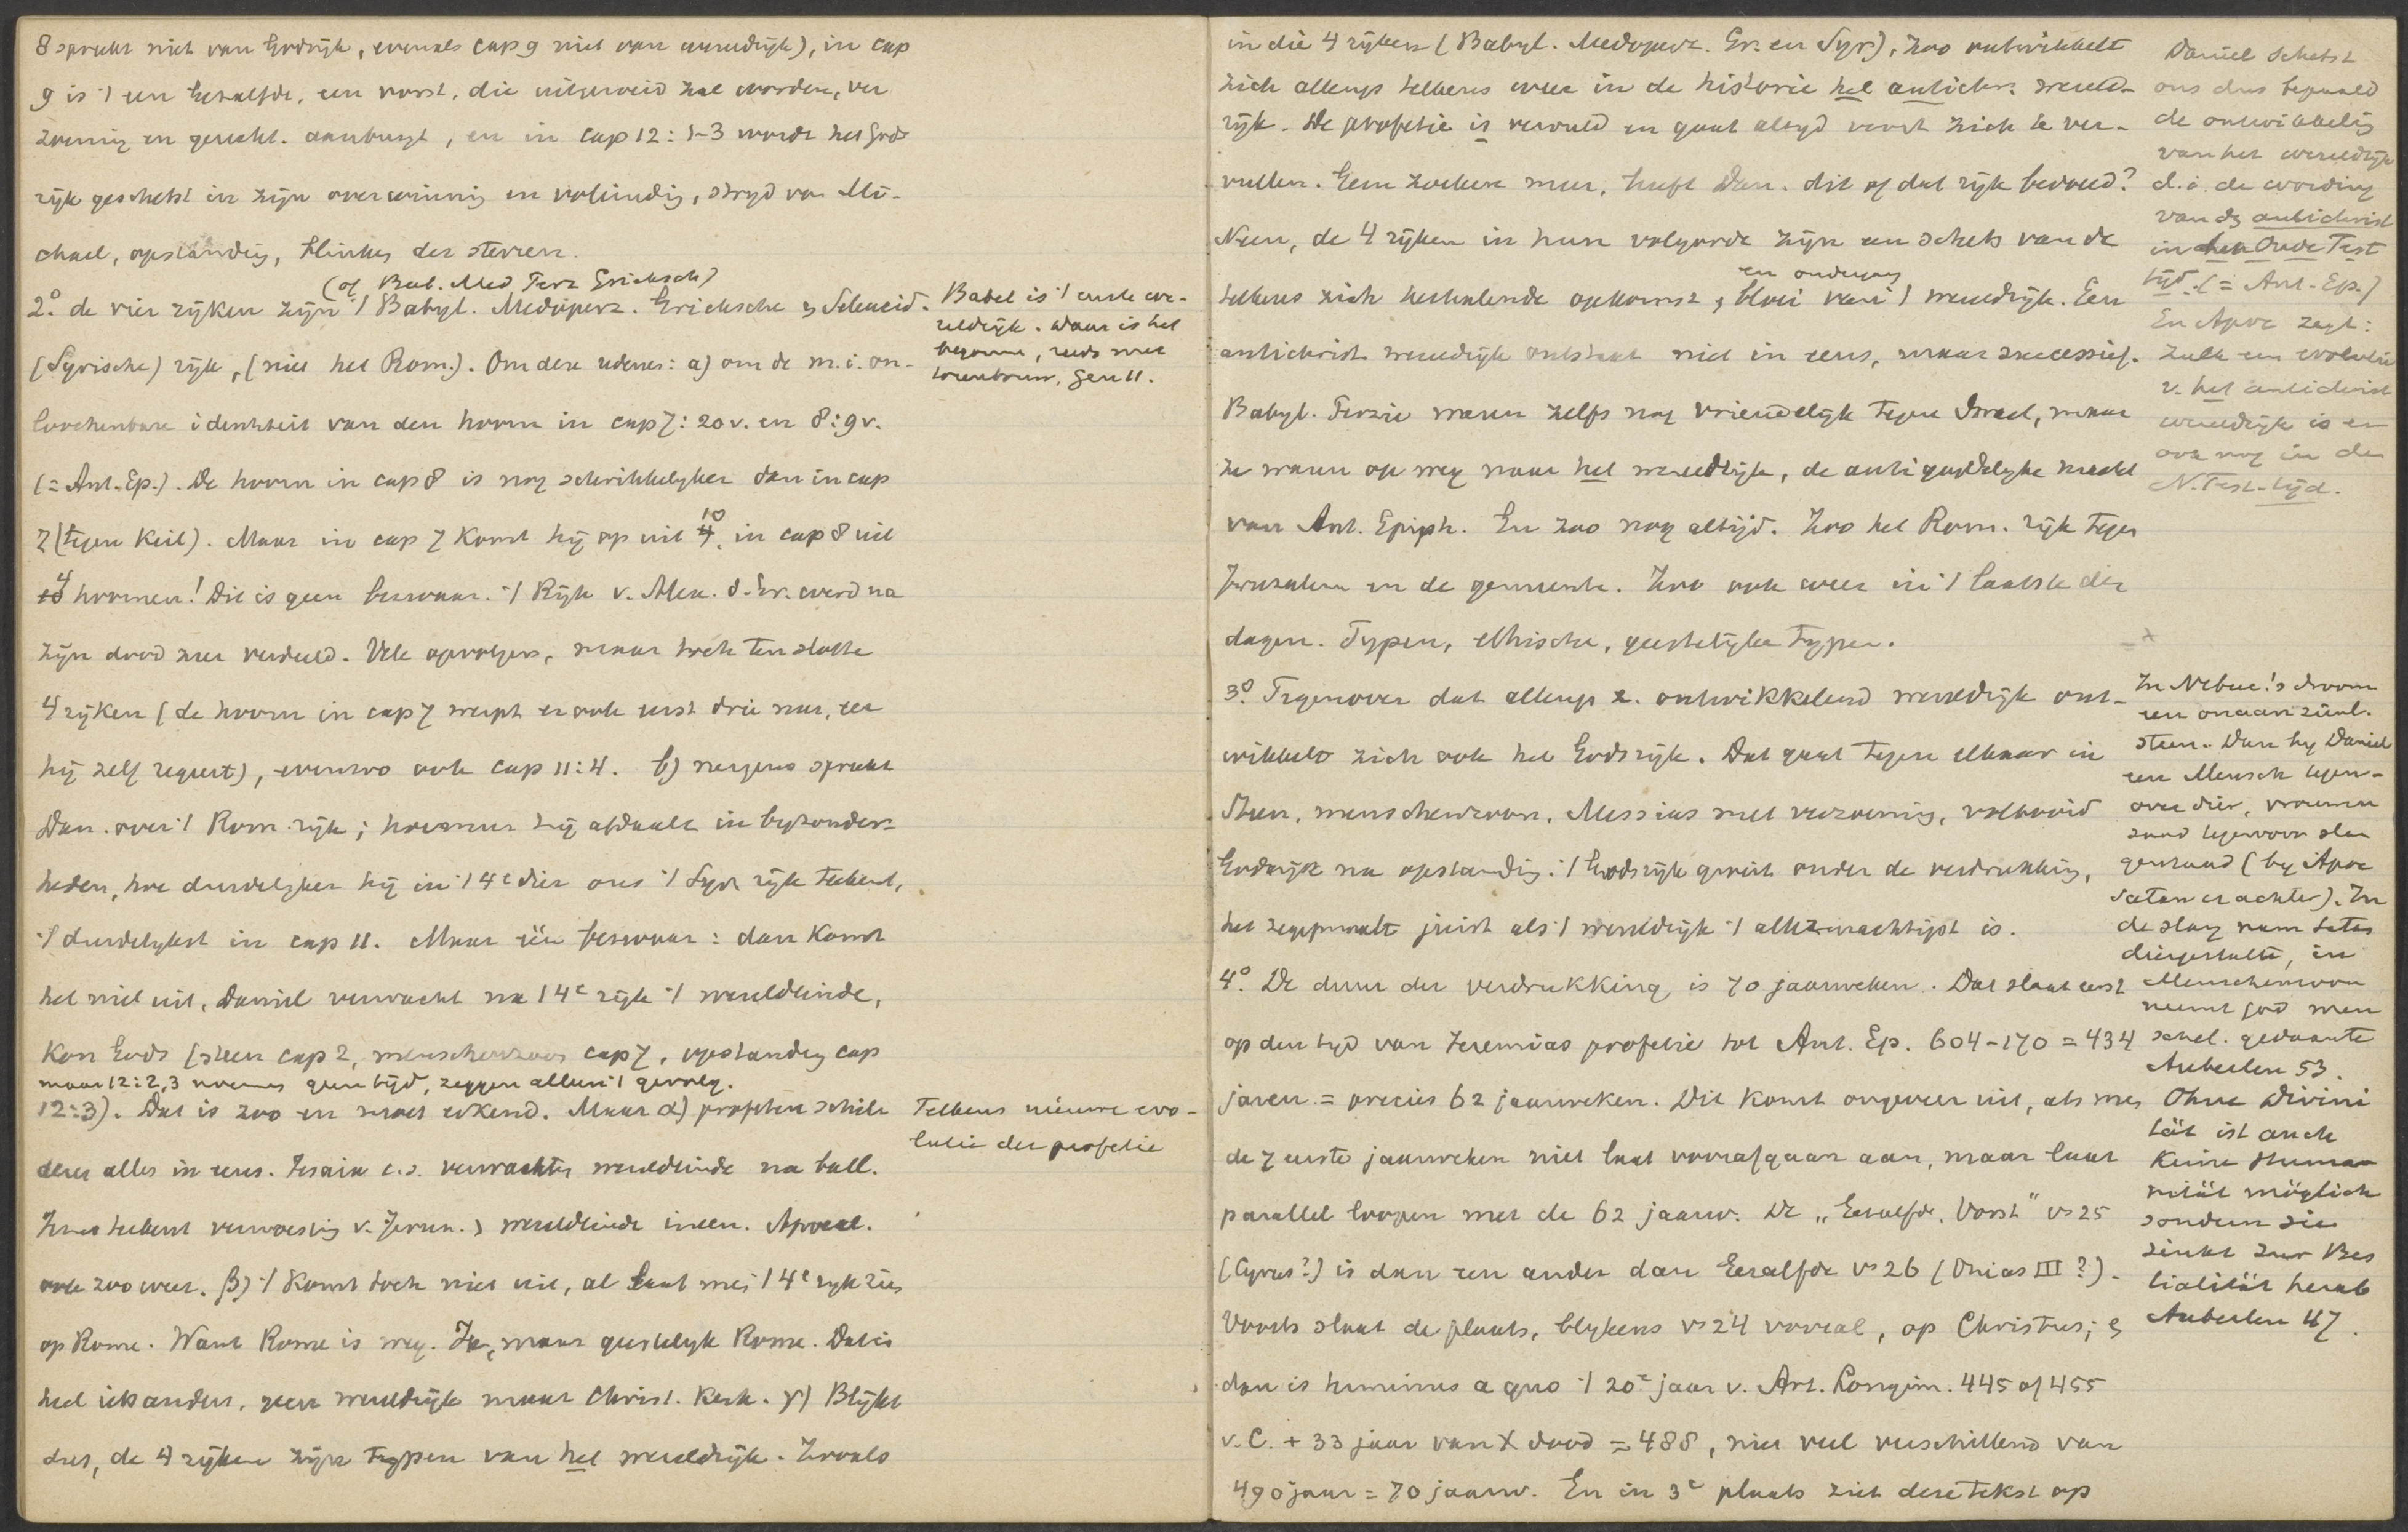 8 spreekt niet van Godrijk, evenals cap 9 niet van wereldrijk), in cap
9 is 't een Gezalfde, een vorst, die uitgeroeid zal worden, ver
zoening en gerecht. aanbrengt, en in cap 12:1-3 wordt het Gods
rijk geschetst in zijn overwinning en voleindig, strijd van Mi-
chael, opstanding, blinken der sterren.
(of Bab. Med Perz Grieksch)
2o. de vier rijken zijn 't Babyl. Medoperz. Grieksche en Seleucid.
(Syrische) rijk, (niet het Rom.). Om deze redenen: a) om de m.i. on-
loochenbare identiteit van den hoorn in cap 7:20v. en 8:9v.
(= Ant. Ep.). De hoorn in cap 8 is nog schrikkelijker dan in cap
7 (tegen Keil). Maar in cap 7 komt hij op uit 10, in cap 8 uit
4 hoornen! Dit is geen bezwaar. 't Rijk v. Alex. d. Gr. werd na
zijn dood zeer verdeeld. Vele opvolgers, maar toch ten slotte
4 rijken (de hoorn in cap 7 werpt er ook eerst drie neer, eer
hij zelf regeert), evenzoo ook cap 11:4. b) nergens spreekt
Dan. over 't Rom. rijk; hoe meer hij afdaalt in byzonder-
heden, hoe duidelyker hij in 't 4e dier ons 't Syr. rijk teekent,
't duidelykst in cap 11. Maar één bezwaar: dan komt
het niet uit, Daniel verwacht na 't 4e rijk 't wereldeinde,
Kon Gods (steen cap 2, menschenzoon cap 7, opstanding cap
maar 12:2,3 noemen geen tijd, zeggen alleen 't gevolg.
12:3). Dat is zoo en moet erkend. Maar α) profeten schil
deren alles in eens. Jesaia e.a. verwachten wereldeinde na ball.
Jezus teekent verwoesting v. Jeruz. & wereldeinde ineen. Apocal.
ook zoo weer. β) 't Komt toch niet uit, al laat men 't 4e ryk zien
op Rome. Want Rome is weg. Ja, maar geestelyk Rome. Dat is
heel iets anders, geen wereldrijk maar Christ. Kerk. γ) Blijkt
dus, de 4 rijken zijn typen van het wereldrijk. Zooals
Babel is 't eerste we-
reldrijk. Daar is het
begonnen, reeds met
torenbouw, Gen 11.
Telkens nieuwe evo-
lutie der profetie
in die 4 rijken (Babyl. Medoperz. Gr. en Syr), zoo ontwikkelt
zich allengs telkens weer in de historie het antichr. wereld-
rijk. De profetie is vervuld en gaat altyd voort zich te ver-
vullen. Geen zoeken meer, heeft Dan. dit of dat rijk bedoeld?
Neen, de 4 rijken in hun volgorde zijn een schets van de
en ondergang
telkens zich herhalende opkomst, bloei van 't wereldrijk. Een
antichrist. wereldrijk ontstaat niet in eens, maar successief.
Babyl. Perzie waren zelfs nog vriendelijk tegen Israel, maar
ze waren op weg naar het wereldrijk, de antigoddelyke macht
van Ant. Epiph. En zoo nog altijd. Zoo het Rom. rijk tegen
Jeruzalem en de gemeente. Zoo ook weer in 't laatste der
dagen. Typen, ethische, geestelyke typen.
3o. Tegenover dat allengs z. ontwikkelend wereldrijk ont-
wikkelt zich ook het Godsrijk. Dat gaat tegen elkaar in
Steen, menschenzoon, Messias met verzoening, voltooid
Godsrijk na opstanding. 't Godsrijk groeit onder de verdrukking,
het zegepraalt juist als 't wereldrijk 't allermachtigst is.
4o. De duur der verdrukking is 70 jaarweken. Dat slaat eerst
op den tyd van Jeremias profetie tot Ant. Ep. 604-170 = 434
jaren = precies 62 jaarweken. Dit komt ongeveer uit, als men
de 7 eerste jaarweken niet laat voorafgaan aan, maar laat
parallel loopen met de 62 jaarw. De „Gezalfde, Vorst" vs 25
(Cyrus?) is dan een ander dan Gezalfde vs 26 (Onias III?).
Voorts slaat de plaats, blykens vs 24 vooral, op Christus; &
dan is terminus a quo 't 20e jaar v. Art. Longim. 445 of 455
v.C. + 33 jaar van X dood = 488, niet veel verschillend van
490 jaar = 70 jaarw. En in 3e plaats ziet deze tekst op
Daniel schetst
ons dus bepaald
de ontwikkeling
van het wereldrijk
d.i. de wording
van dz antichrist
in den Oude Test
tijd. (= Ant. Ep.)
En Apoc zegt:
zulk een evolutie
v. het antichrist
wereldrijk is er
ook nog in de
N. Test. tijd.
In Nebuc's droom
een onaanzienl.
steen. Dan by Daniel
een Mensch tegen-
over dier, vrouwen
zaad tegenover slan
genzaad (by Apoc
Satan er achter). In
de slang nam Satan
diergestalte, in
Menschenzoon
neemt God men
schel. gedaante
Auberlen 53.
Ohne Divini
tät ist auch
keine Huma-
nität möglich
sondern sie
sinkt zur Bes
tialität herab
Auberlen 47.